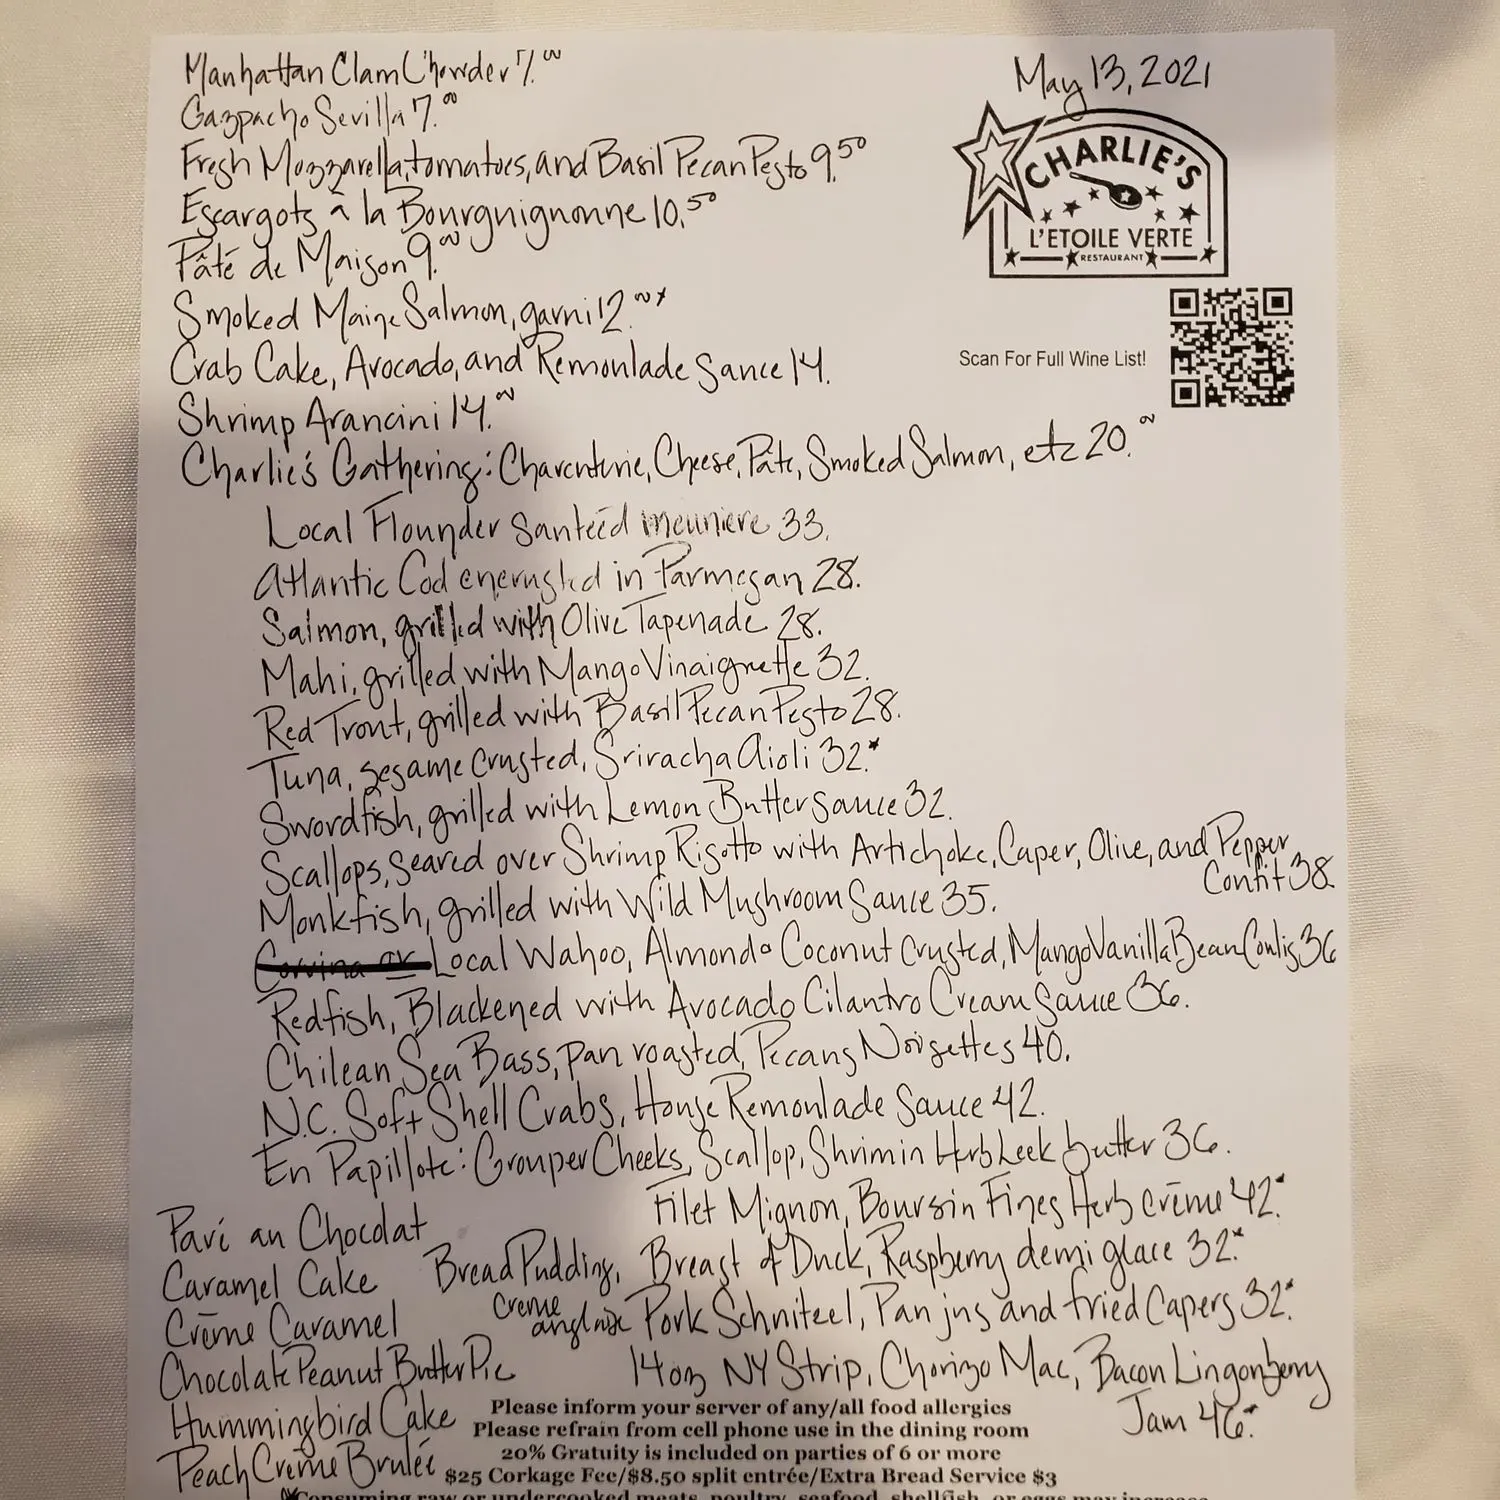 May 13, 2021
CHARLIE'S
L'ETOILE VERTE
RESTAURANT
Scan For Full Wine List!
Manhattan Clam Chowder 7.00
Gazpacho Sevilla 7.00
Fresh Mozzarella, tomatoes, and Basil Pecan Pesto 9.50
Escargots à la Bourguignonne 10.50
Pâté de Maison 9.00
Smoked Maine Salmon, garni 12.00*
Crab Cake, Avocado, and Remoulade Sauce 14.
Shrimp Arancini 14.00
Charlie's Gathering: Charcuterie, Cheese, Pâte, Smoked Salmon, etc 20.00
Local Flounder sauteéd meuniere 33.
Atlantic Cod encrusted in Parmesan 28.
Salmon, grilled with Olive Tapenade 28.
Mahi, grilled with Mango Vinaigrette 32.
Red Trout, grilled with Basil Pecan Pesto 28.
Tuna, sesame crusted, Sriracha Aioli 32.*
Swordfish, grilled with Lemon Butter Sauce 32.
Scallops, seared over Shrimp Risotto with Artichoke, Caper, Olive, and Pepper
Confit 38
Monkfish, grilled with Wild Mushroom Sauce 35.
Corvina or Local Wahoo, Almond & Coconut crusted, Mango Vanilla Bean Coulis 36
Redfish, Blackened with Avocado Cilantro Cream Sauce 36.
Chilean Sea Bass, pan roasted, Pecans Noisettes 40.
N.C. Soft Shell Crabs, House Remoulade Sauce 42.
En Papillote: Grouper Cheeks, Scallop, Shrim in Herb Leek butter 36.
Filet Mignon, Boursin Fines Herb crème 42.*
Breast of Duck, Raspberry demi glace 32.*
Pork Schnitzel, Pan jus and fried Capers 32.*
14oz NY Strip, Chorizo Mac, Bacon Lingonberry
Jam 46.*
Pavé au Chocolat
Caramel Cake
Crème Caramel
Chocolate Peanut Butter Pie
Hummingbird Cake
Peach Crème Brulée
Bread Pudding,
creme
anglaise
Please inform your server of any/all food allergies
Please refrain from cell phone use in the dining room
20% Gratuity is included on parties of 6 or more
$25 Corkage Fee/$8.50 split entrée/Extra Bread Service $3
*Consuming raw or undercooked meats, poultry, seafood, shellfish, or eggs may increase